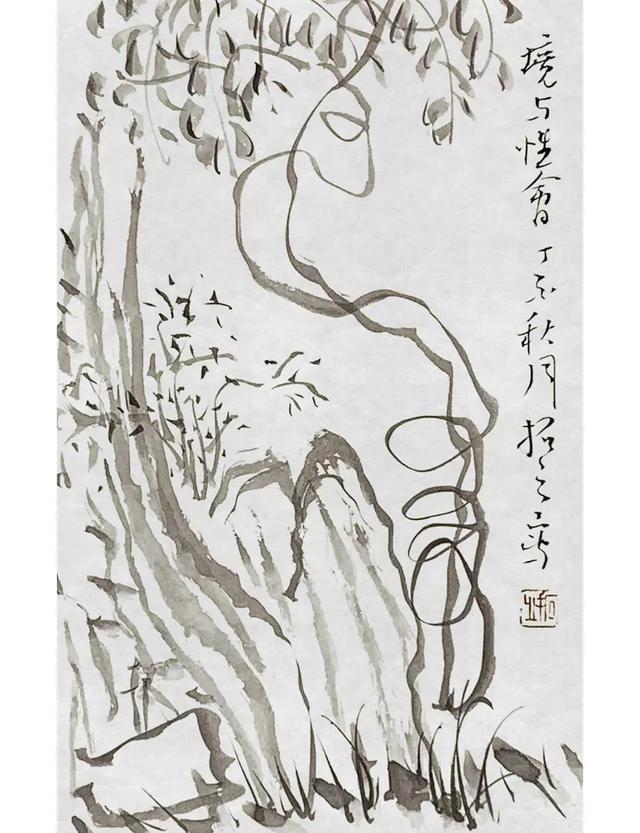 境与性會 丁亥秋月 招之寫